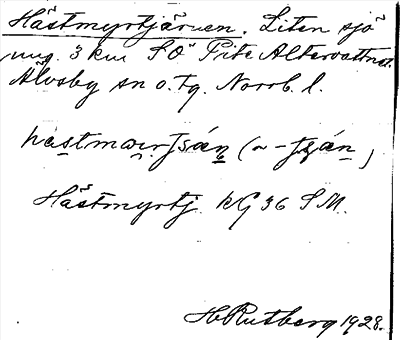 Hästmyrtjärnen. Liten sjö
ung. 3 km SO Pite Altervattnet.
Älvsby sn o. tg. Norrb. l.
Hästmyrtj. kG 36 SM.
H Rutberg 1928.